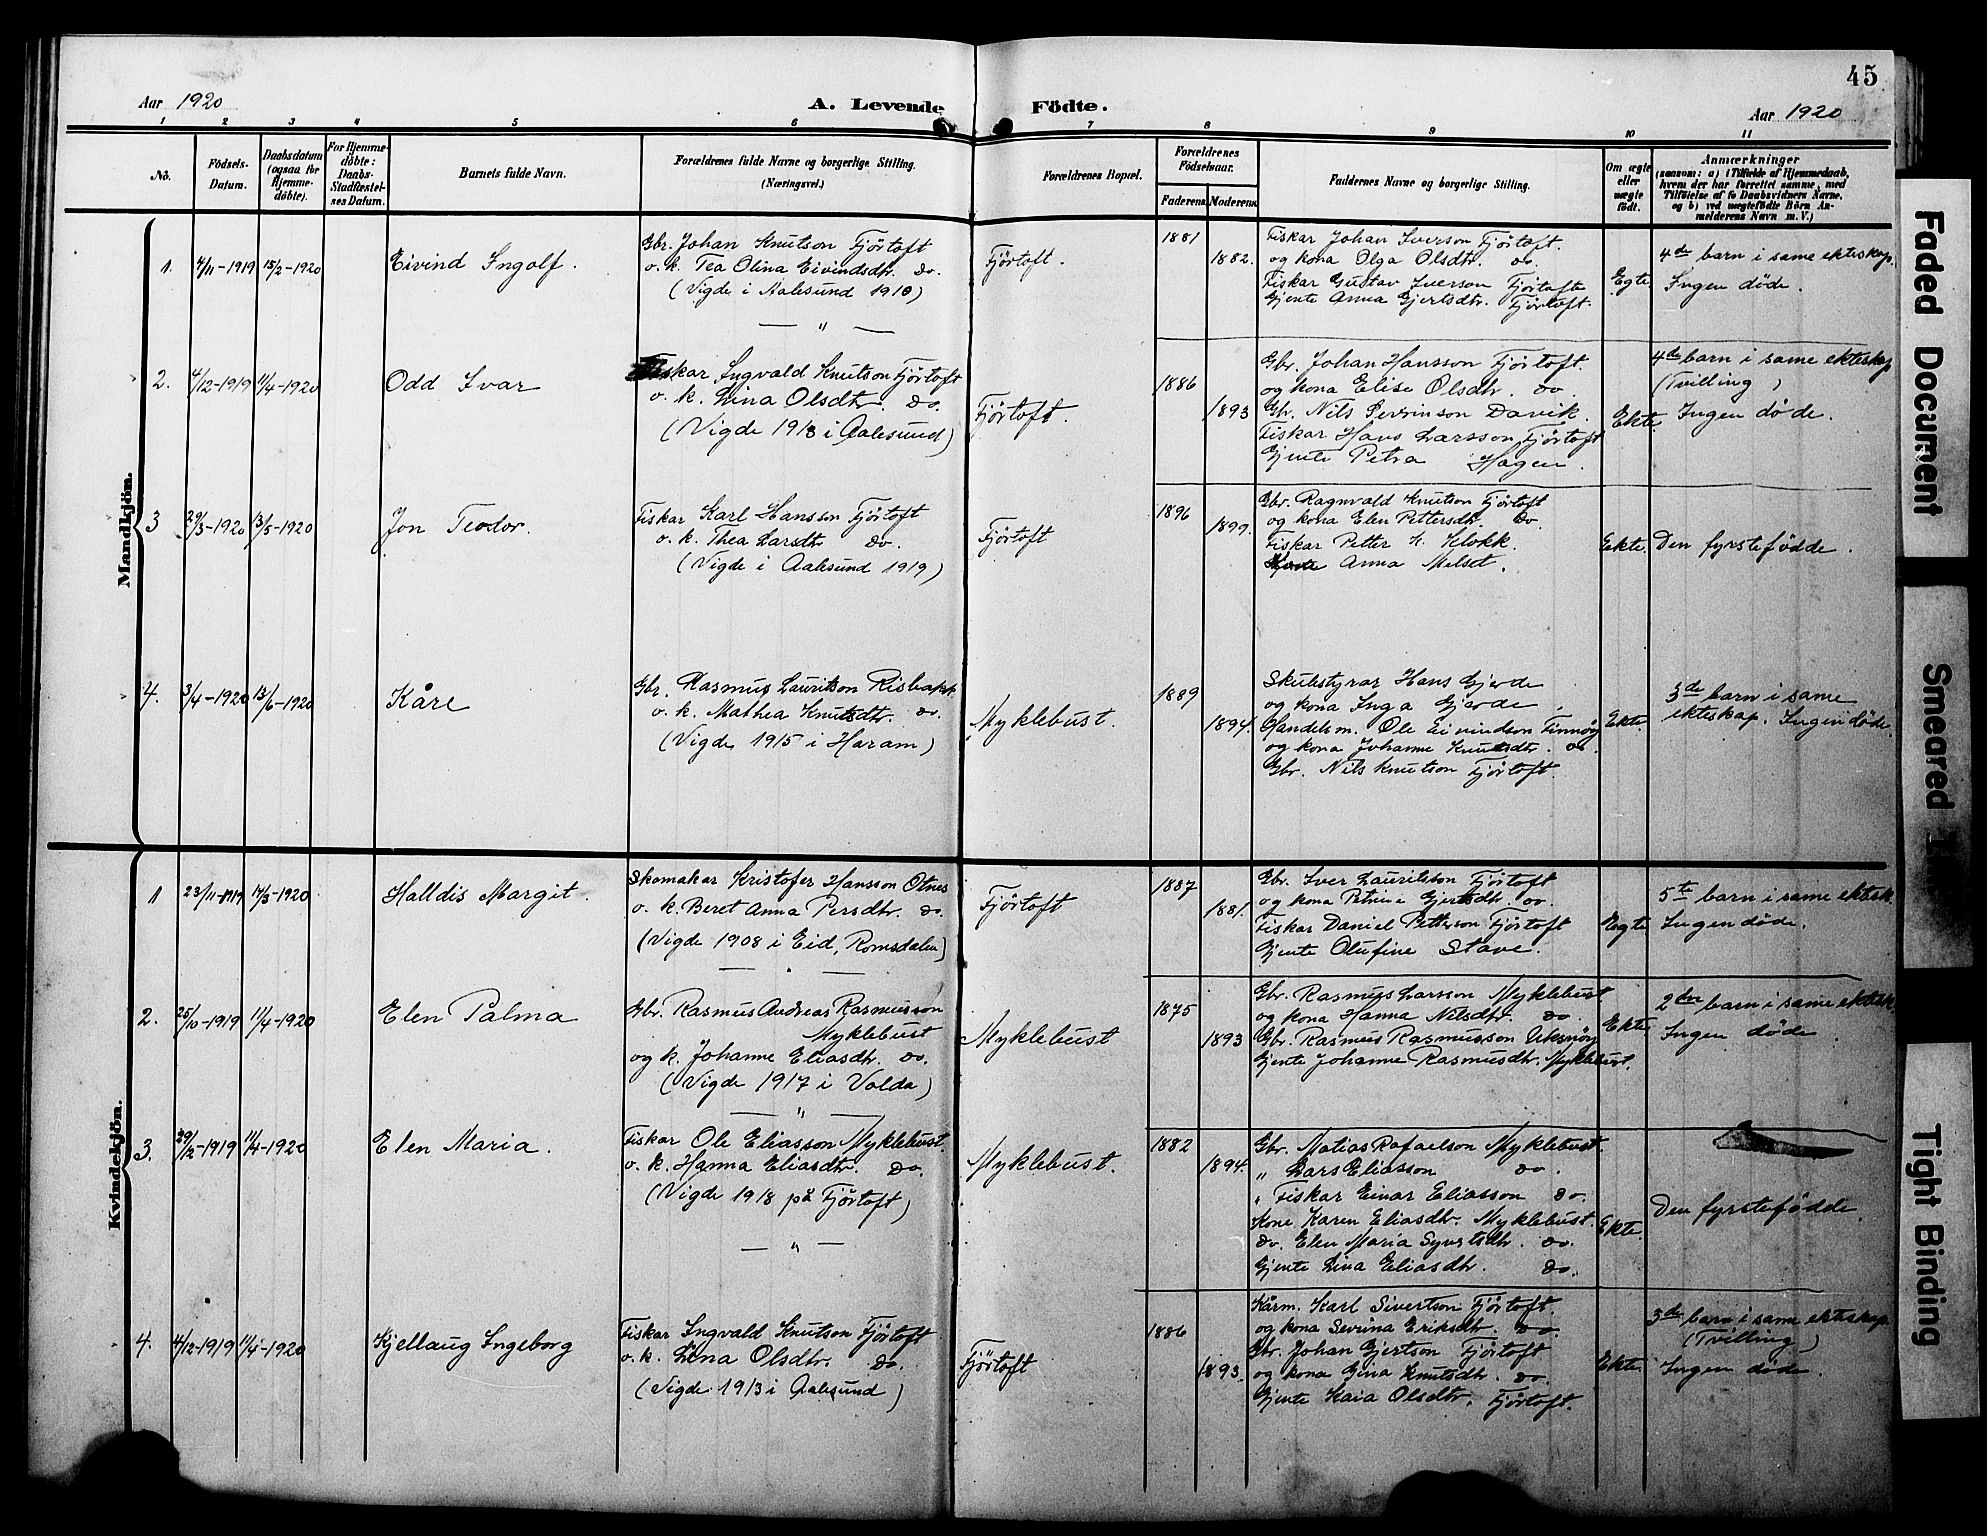 45
Aar 1920
A. Levende Födte.
Aar 1920
1 2 3 4 5 6 7 8 9 10 11
No.
Födsels-
Datum.
Daabsdatum
(ogsaa for
Hjemme-
döbte).
For Hjemme-
döbte:
Daabs-
Stadfæstel-
ses Datum.
Barnets fulde Navn.
Forældrenes fulde Navne og borgerlige Stilling.
(Næringsvei.)
Forældrenes Bopæl.
Forældrenes
Födselsaar.
Faderens
Moderens
Faddernes Navne og borgerlige Stilling.
Om ægte
eller
uægte
födt.
Anmærkninger
(saasom: a) i Tilfælde af Hjemmedaab,
hvem der har forrettet samme, med
Tilföielse af to Daabsvidners Navne,
og b) ved uægtefödte Börn An-
melderens Navn m. V.)
Mandkjön.
1. 4/11-1919 15/2-1920
Eivind Ingolf.
Gbr. Johan Knutson Fjörtoft
o. k. Tea Olina Eivindsdtr. do.
(Vigde i Aalesund 1910)
Fjörtoft.
1881
1882.
Fiskar Johan Iverson Fjörtoft.
og kona Olga Olsdtr. do.
Fiskar Gustav Iverson Fjörtoft
Gjente Anna Gjertsdtr. Fjörtoft.
Egte
4de barn i same ekteskap.
Ingen döde.
2. 4/12-1919 11/4-1920
Odd Ivar
Fiskar Ingvald Knutson Fjörtoft
o. k. Lina Olsdtr. do.
(Vigde 1913 i Aalesund)
Fjörtoft.
1886
1893
Gbr. Johan Hansson Fjörtoft.
og kona Elise Olsdtr. do
Gbr. Nils Sevrinson Davik.
Fiskar Hans Larsson Fjörtoft
Gjente Petra Hagen.
Ekte.
4de barn i same ekteskap
(Tvilling)
Ingen döde.
3 29/3-1920 13/5-1920
Jon Teodor.
Fiskar Karl Hansson Fjörtoft
o. k. Thea Larsdtr do.
(Vigde i Aalesund 1919)
Fjörtoft
1896
1899.
Gbr. Ragnvald Knutson Fjörtoft
og kona Elen Pettersdtr. do.
Fiskar Petter K. Klokk.
Gjente Anna Melset.
Ekte.
Den fyrstefödde.
4. 3/4-1920 13/6-1920
Kåre
Gbr. Rasmus Lauritson Risbakk
o. k. Mathea Knutsdtr. do.
(Vigde 1915 i Haram)
Myklebust.
1889
1894.
Skulestyrar Hans Gjerde
og kona Inga Gjerde.
Handelsm. Ole Eivindson Finnöy
og kona Johanne Knutsdtr. do.
Gbr. Nils Knutson Fjörtoft.
Ekte.
3de barn i same
ekteskap. Ingen döde.
Kvindekjön.
1 23/11-1919 17/3-1920
Halldis Margit.
Skomakar Kristofer Hansson Otnes
o. k. Beret Anna Persdtr. do.
(Vigde 1908 i Eid, Romsdalen)
Fjörtoft
1887
1881.
Gbr. Iver Lauritsson Fjörtoft
og kona Petrine Gjertsdtr. do.
Fiskar Daniel Petterson Fjörtoft
Gjente Olufine Stave.
Egte
5te barn i same ektesk.
Ingen döde.
2. 25/10-1919 11/4-1920
Elen Palma
Gbr. Rasmus Andreas Rasmusson
Myklebust
og k. Johanne Eliasdtr. do.
(Vigde 1917 i Volda)
Myklebust
1875
1893
Gbr. Rasmus Larsson Myklebust
og kona Hanna Nilsdtr. do.
Gbr. Rasmus Rasmusson Uksnöy
Gjente Johanne Rasmusdtr. Myklebust.
Ekte.
2den barn i same ektesk.
Ingen döde
3. 29/12-1919 11/4-1920
Elen Maria.
Fiskar Ole Eliasson Myklebust.
o. k. Hanna Eliasdtr. do.
(Vigde 1918 på Fjörtoft)
Myklebust.
1882
1894.
Gbr. Matias Rafaelson Myklebust.
" Lars Eliasson do.
" Fiskar Einar Eliasson do.
Kone Karen Eliasdtr. Myklebust.
do. Elen Maria Syvertsdtr. do.
Gjente Lina Eliasdtr. do.
Ekte.
Den fyrstefödde.
4. 4/12-1919 11/4-1920
Kjellaug Ingeborg
Fiskar Ingvald Knutson Fjörtoft
o. k. Lina Olsdtr. do.
(Vigde 1913 i Aalesund)
Fjörtoft
1886
1893.
Kårm. Karl Sivertson Fjörtoft.
og kona Sevrina Eriksdtr. do.
Gbr. Johan Gjertson Fjörtoft
og kona Gina Knutsdtr. do.
Gjente Kaia Olsdtr. Fjörtoft.
Ekte.
3de barn i same ekteskap.
(Tvilling)
Ingen döde.
Faded Document
Smeared
Tight Binding